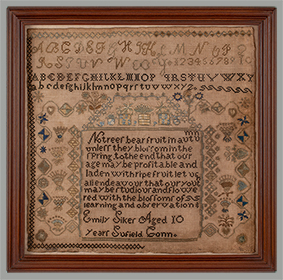 A B C D E F G H I K L M N O P Q
R S T U V W X Y 1 2 3 4 5 6 7 8 9
ABCDEFGHIKLMNOP QRSTUVWXY
abcdefghijklmnopqrstuvwxyz
No trees bear fruit in autu mn
unless they blossom in the
spring. to the end that our
age may be profitable and
laden with ripe fruit let us
all endeavour that our yout
may be studious and flowe
red with the blossoms of
learning and observation
Emily Siker Aged 10
Years Sufield Conn.